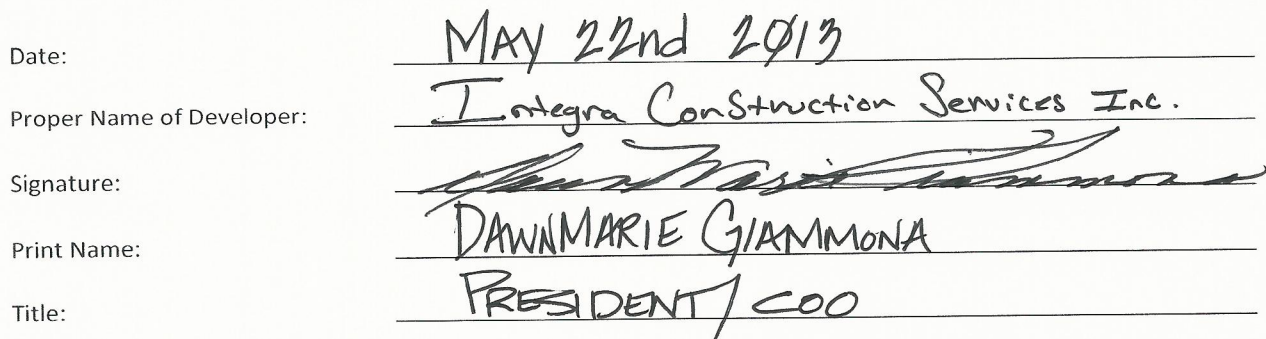 Date: MAY 22nd 2013
Proper Name of Developer: Integra Construction Services Inc.
Signature: DawnMarie Giammona
Print Name: DAWNMARIE GIAMMONA
Title: PRESIDENT/ COO